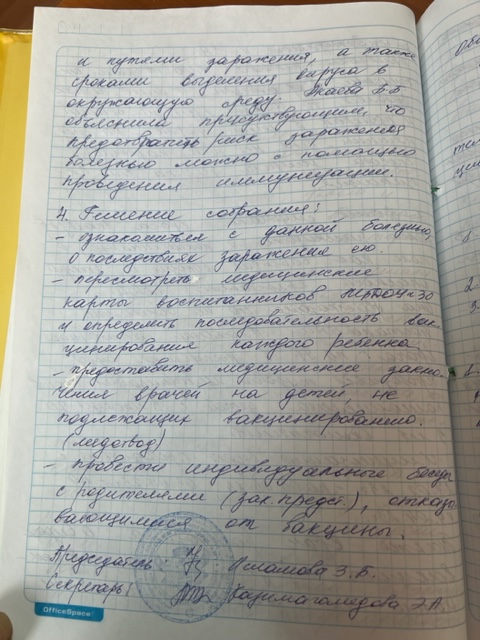 и путями заражения, а также
сроками выделения вируса в
окружающую среду. Акаева Б.Б
объяснила присутствующим, что
предотвратить риск заражения
болезнью можно с помощью
проведения иммунизации.
4. Решение собрания:
- ознакомиться с данной болезнью,
о последствиях заражения ею.
- пересмотреть медицинские
карты воспитанников №30
и определить последовательность вак-
цинирования каждого ребенка
- предоставить медицинские заклю-
чения врачей на детей, не
подлежащих вакцинированию.
(медотвод)
- провести индивидуальные беседы
с родителями (зак. предст.), отказы-
вающимися от вакцины.
Председатель: Исламова З.Б.
Секретарь: Казимагомедова Э.А
OfficeSpace